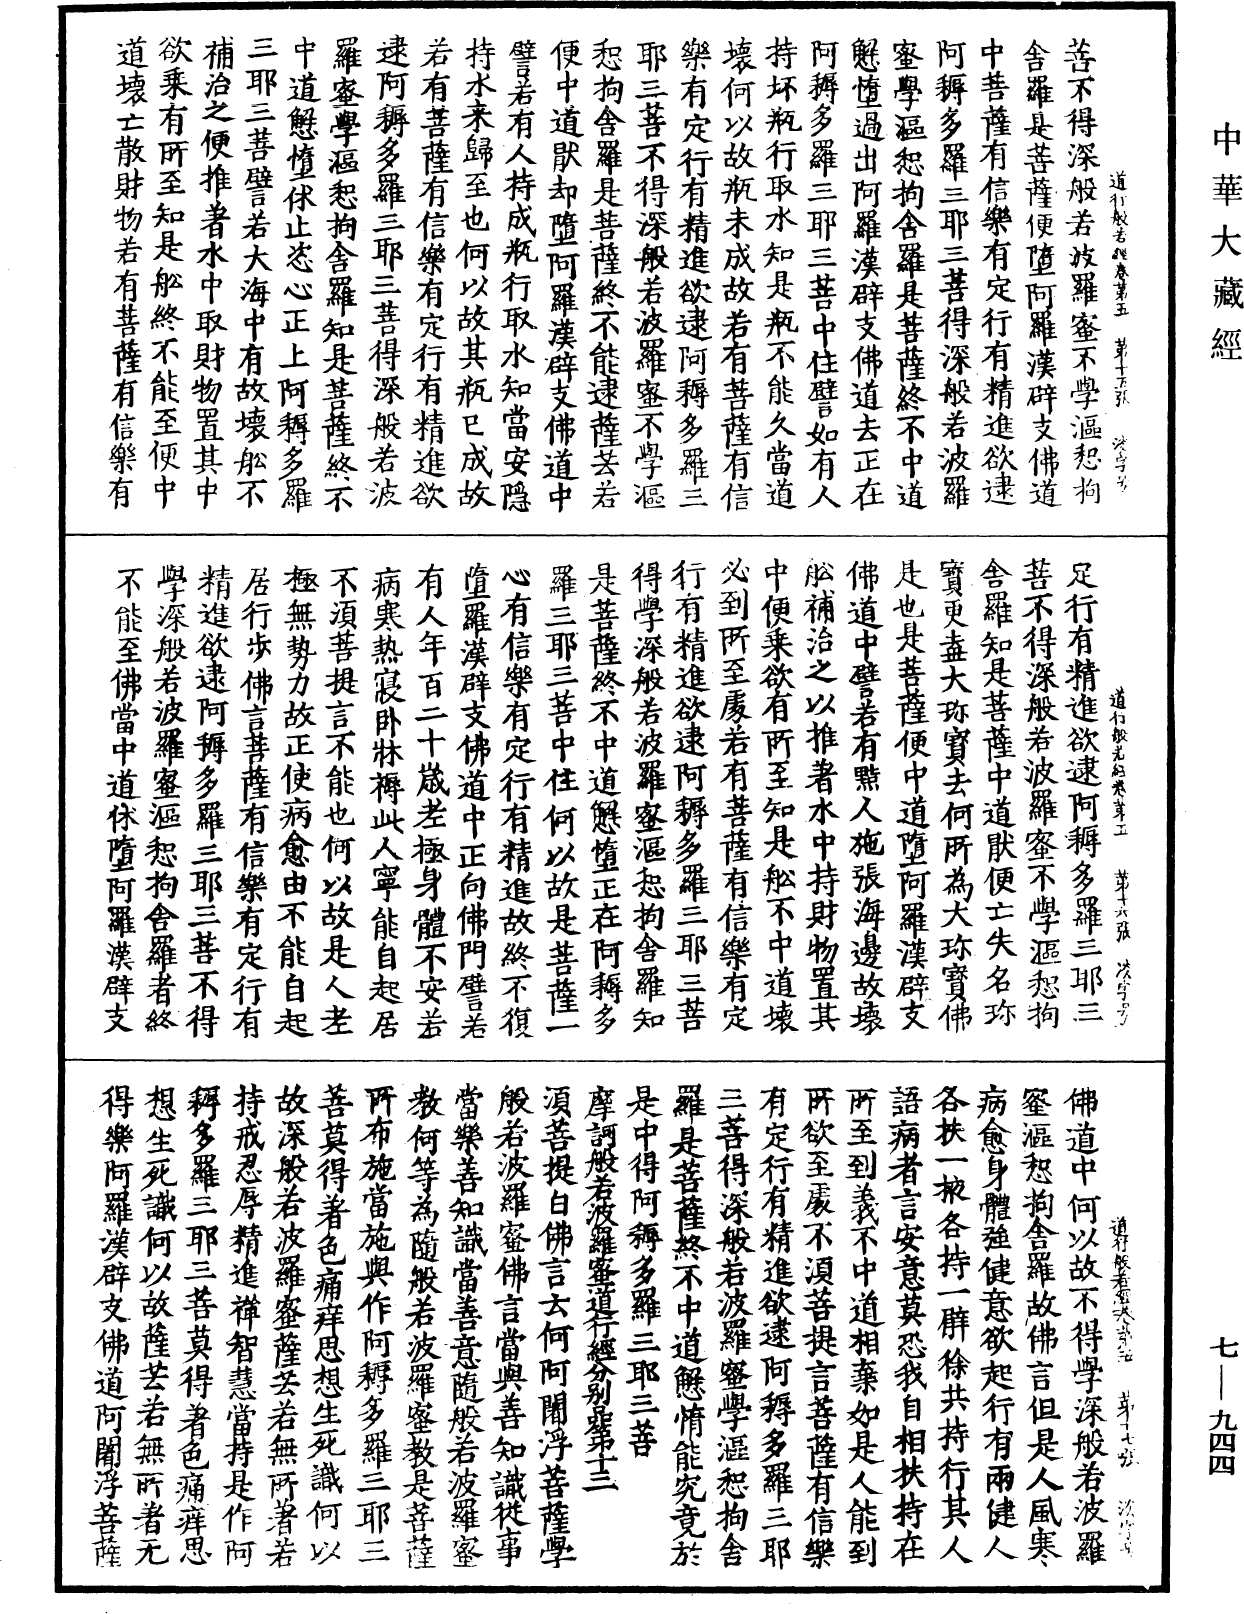 中華大藏經
善不得深般若波羅蜜不學漚惒拘
舍羅是菩薩便墮阿羅漢辟支佛道
中菩薩有信樂有定行有精進欲逮
阿耨多羅三耶三菩得深般若波羅
蜜學漚惒拘舍羅是菩薩終不中道
懈墮過出阿羅漢辟支佛道去正在
阿耨多羅三耶三菩中住譬如有人
持坏瓶行取水知是瓶不能久當道
壞何以故瓶未成故若有菩薩有信
樂有定行有精進欲逮阿耨多羅三
耶三菩不得深般若波羅蜜不學漚
惒拘舍羅是菩薩終不能逮薩芸若
便中道猒却墮阿羅漢辟支佛道中
譬若有人持成瓶行取水知當安隱
持水来歸至也何以故其瓶已成故
若有菩薩有信樂有定行有精進欲
逮阿耨多羅三耶三菩得深般若波
羅蜜學漚惒拘舍羅知是菩薩終不
中道懈墮休止恣心正上阿耨多羅
三耶三菩譬若大海中有故壞舩不
補治之便推著水中取財物置其中
欲乘有所至知是舩終不能至便中
道壞亡散財物若有菩薩有信樂有
道行般若經卷第五 第十五張
定行有精進欲逮阿耨多羅三耶三
菩不得深般若波羅蜜不學漚惒拘
舍羅知是菩薩中道猒便亡失名珎
寶更棄大珎寶去何所為大珎寶佛
是也是菩薩便中道墮阿羅漢辟支
佛道中譬若有黠人施張海邊故壞
舩補治之以推著水中持財物置其
中便乘欲有所至知是舩不中道壞
必到所至處若有菩薩有信樂有定
行有精進欲逮阿耨多羅三耶三菩
得學深般若波羅蜜漚惒拘舍羅知
是菩薩終不中道懈墮正在阿耨多
羅三耶三菩中住何以故是菩薩一
心有信樂有定行有精進故終不復
墮羅漢辟支佛道中正向佛門譬若
有人年百二十歲老極身體不安若
病寒熱寢卧牀褥此人寧能自起居
不須菩提言不能也何以故是人老
極無勢力故正使病愈由不能自起
居行步佛言菩薩有信樂有定行有
精進欲逮阿耨多羅三耶三菩不得
學深般若波羅蜜漚惒拘舍羅者終
不能至佛當中道休墮阿羅漢辟支
道行般若經卷第五 第十六張
佛道中何以故不得學深般若波羅
蜜漚惒拘舍羅故佛言但是人風寒
病愈身體強健意欲起行有兩健人
各扶一掖各持一臂徐共持行其人
語病者言安意莫恐我自相扶持在
所至到義不中道相棄如是人能到
所欲至處不須菩提言菩薩有信樂
有定行有精進欲逮阿耨多羅三耶
三菩得深般若波羅蜜學漚惒拘舍
羅是菩薩終不中道懈惰能究竟於
是中得阿耨多羅三耶三菩
摩訶般若波羅蜜道行經分別品第十三
須菩提白佛言云何阿闍浮菩薩學
般若波羅蜜佛言當與善知識從事
當樂善知識當善意隨般若波羅蜜
教何等為隨般若波羅蜜教是菩薩
所布施當施與作阿耨多羅三耶三
菩莫得著色痛痒思想生死識何以
故深般若波羅蜜薩芸若無所著若
持戒忍辱精進禪智慧當持是作阿
耨多羅三耶三菩莫得著色痛痒思
想生死識何以故薩芸若無所著无
得樂阿羅漢辟支佛道阿闍浮菩薩
道行般若經卷第五 第十七張
七—九四四